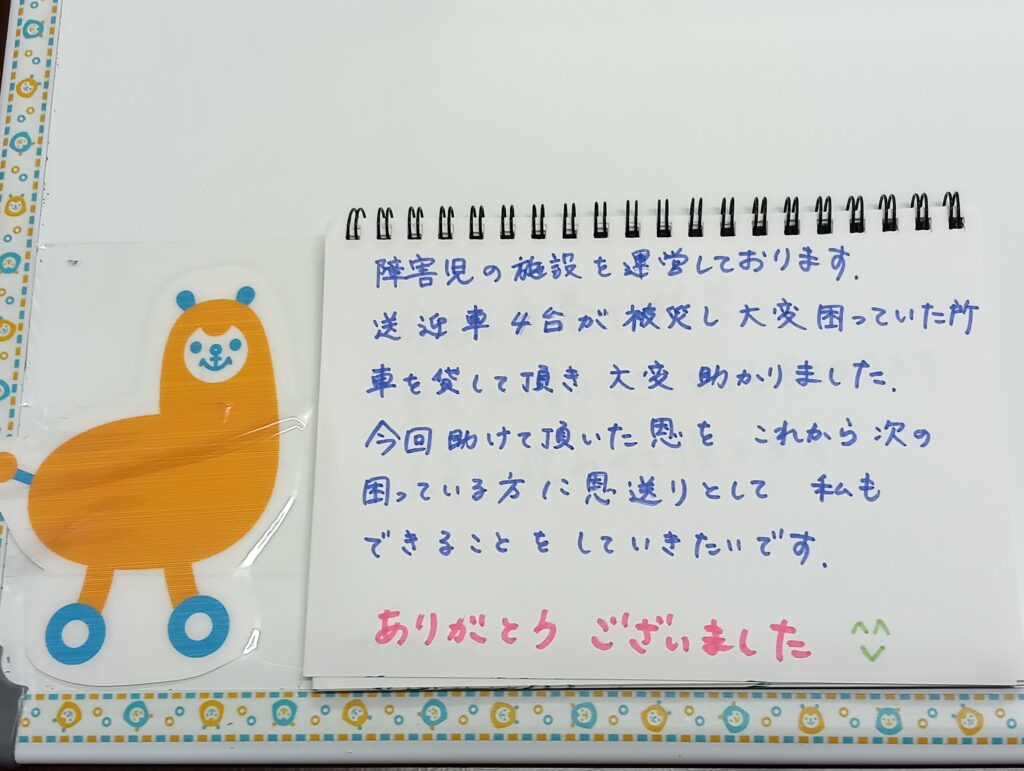 障害児の施設を運営しております.
送迎車4台が被災し大変困っていた所
車を貸して頂き 大変 助かりました.
今回助けて頂いた恩を これから次の
困っている方に恩送りとして 私も
できることをしていきたいです.
ありがとう ございました